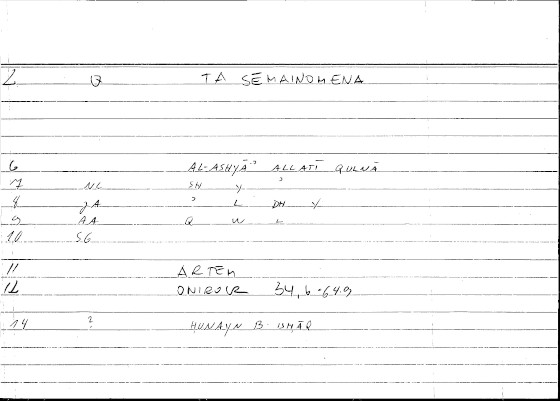 2 B TA SĒMAINOMENA
6 AL-ASHYĀʾ ALLATĪ QULNĀ
7 NC SH Y ʾ
8 JA ʾ L DH Y
9 AA Q W L
10 SG
11 ARTEM
12 ONIROCR 34,6-64.9
14 ? HUNAYN B ISHĀQ